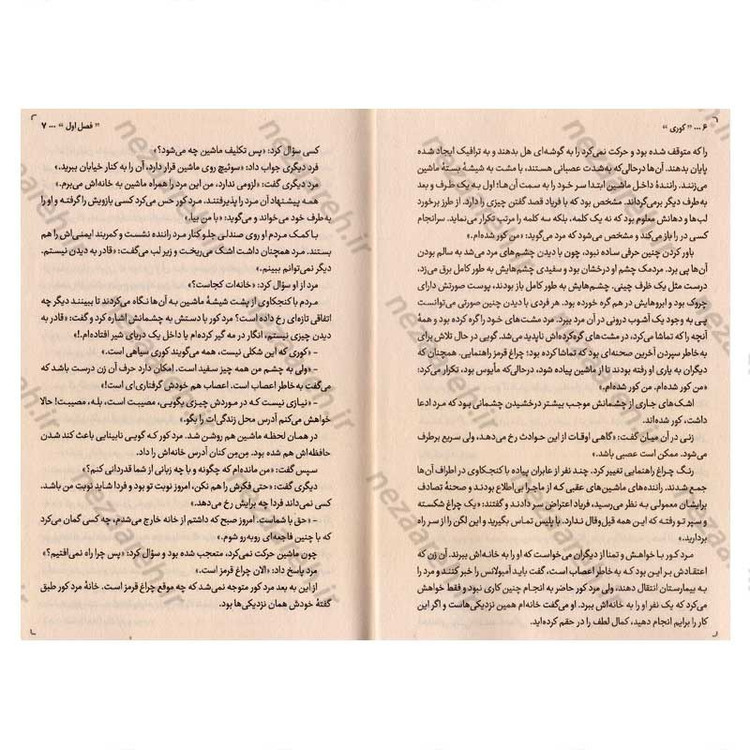 ۶ ... " کوری "
را که متوقف شده بود و حرکت نمی‌کرد را به گوشه‌ای هل بدهند و به ترافیک ایجاد شده
پایان بدهند. آن‌ها درحالی‌که به‌شدت عصبانی هستند، با مشت به شیشهٔ بستهٔ ماشین
می‌زنند. رانندهٔ داخل ماشین ابتدا سر خود را به سمت آن‌ها؛ اول به یک طرف و بعد
به طرف دیگر برمی‌گرداند. مشخص بود که با فریاد قصد گفتن چیزی را دارد. از طرز برخورد
لب‌ها و دهانش معلوم بود که نه یک کلمه، بلکه سه کلمه را مرتب تکرار می‌نماید. سرانجام
کسی در را باز می‌کند و مشخص می‌شود که مرد می‌گوید: «من کور شده‌ام.»
باور کردن چنین حرفی ساده نبود، چون با دیدن چشم‌های مرد می‌شد به سالم بودن
آن‌ها پی برد. مردمک چشم او درخشان بود و سفیدی چشم‌هایش به طور کامل برق می‌زد،
درست مثل یک ظرف چینی. چشم‌هایش به طور کامل باز بودند، پوست صورتش دارای
چروک بود و ابروهایش در هم گره خورده بود. هر فردی با دیدن چنین صورتی می‌توانست
پی به وجود یک آشوب درونی در آن مرد ببرد. مرد مشت‌های خود را گره کرده بود و همهٔ
آنچه را که تماشا می‌کرد، در مشت‌های گره‌کرده‌اش ناپدید می‌شد. گویی در حال تلاش برای
به خاطر سپردن آخرین صحنه‌ای بود که تماشا کرده بود؛ چراغ قرمز راهنمایی. همچنان که
دیگران به یاری او رفته بودند تا از ماشین پیاده شود، درحالی‌که مأیوس بود، تکرار می‌کرد:
«من کور شده‌ام. من کور شده‌ام.»
اشک‌های جاری از چشمانش موجب بیشتر درخشیدن چشمانی بود که مرد ادعا
داشت، کور شده‌اند.
زنی در آن میان گفت: «گاهی اوقات از این حوادث رخ می‌دهد، ولی سریع برطرف
می‌شود. ممکن است عصبی باشد.»
رنگ چراغ راهنمایی تغییر کرد. چند نفر از عابران پیاده با کنجکاوی در اطراف آن‌ها
جمع شدند. راننده‌های ماشین‌های عقبی که از ماجرا بی‌اطلاع بودند و صحنهٔ تصادف
برایشان معمولی به نظر می‌رسید، فریاد اعتراض سر دادند و گفتند: «یک چراغ شکسته
و سپر تو رفته که این همه قیل‌وقال ندارد. با پلیس تماس بگیرید و این لگن را از سر راه
بردارید.»
مرد کور با خواهش و تمنا از دیگران می‌خواست که او را به خانه‌اش ببرند. آن زن که
اعتقادش بر این بود که به خاطر اعصاب است، گفت باید آمبولانس را خبر کنند و مرد را
به بیمارستان انتقال دهند، ولی مرد کور حاضر به انجام چنین کاری نبود و فقط خواهش
می‌کرد که یک نفر او را به خانه‌اش ببرد. او می‌گفت خانه‌ام همین نزدیکی‌هاست و اگر این
کار را برایم انجام دهید، کمال لطف را در حقم کرده‌اید.
" فصل اول " ... ۷
کسی سؤال کرد: «پس تکلیف ماشین چه می‌شود؟»
فرد دیگری جواب داد: «سوئیچ روی ماشین قرار دارد، آن را به کنار خیابان ببرید.»
مرد دیگری گفت: «لزومی ندارد، من این مرد را همراه ماشین به خانه‌اش می‌برم.»
همه پیشنهاد آن مرد را پذیرفتند. مرد کور حس می‌کرد کسی بازویش را گرفته و او را
به طرف خود می‌خواند و می‌گوید: «با من بیا.»
با کمک مردم او روی صندلی جلو کنار مرد راننده نشست و کمربند ایمنی‌اش را هم
بستند. مرد همچنان داشت اشک می‌ریخت و زیر لب می‌گفت: «قادر به دیدن نیستم.
دیگر نمی‌توانم ببینم.»
مرد از او سؤال کرد: «خانه‌ات کجاست؟»
مردم با کنجکاوی از پشت شیشهٔ ماشین به آن‌ها نگاه می‌کردند تا ببینند دیگر چه
اتفاقی تازه‌ای رخ داده است؟ مرد کور با دستش به چشمانش اشاره کرد و گفت: «قادر به
دیدن چیزی نیستم، انگار در مه گیر کرده‌ام یا داخل یک دریای شیر افتاده‌ام!»
- «کوری که این شکلی نیست، همه می‌گویند کوری سیاهی است.»
- «ولی به چشم من همه چیز سفید است. امکان دارد حرف آن زن درست باشد که
می‌گفت به خاطر اعصاب است. اعصاب هم خودش گرفتاری‌ای است!»
- «نیازی نیست که در موردش چیزی بگویی، مصیبت است، بله، مصیبت! حالا
خواهش می‌کنم آدرس محل زندگی‌ات را بگو.»
در همان لحظه ماشین هم روشن شد. مرد کور که گویی نابینایی باعث کند شدن
حافظه‌اش هم شده بود. مِن‌مِن کنان آدرس خانه‌اش را داد.
سپس گفت: «من مانده‌ام که چگونه و با چه زبانی از شما قدردانی کنم؟»
دیگری گفت: «حتی فکرش را هم نکن، امروز نوبت تو بود و فردا شاید نوبت من باشد.
کسی نمی‌داند فردا چه برایش رخ می‌دهد.»
- «حق با شماست. امروز صبح که داشتم از خانه خارج می‌شدم، چه کسی گمان می‌کرد
که با چنین فاجعه‌ای روبه‌رو شوم.»
چون ماشین حرکت نمی‌کرد، متعجب شده بود و سؤال کرد: «پس چرا راه نمی‌افتیم؟»
مرد پاسخ داد: «الان چراغ قرمز است.»
از این به بعد مرد کور متوجه نمی‌شد که چه موقع چراغ قرمز است. خانهٔ مرد کور طبق
گفتهٔ خودش همان نزدیکی‌ها بود.
nezaareh.ir